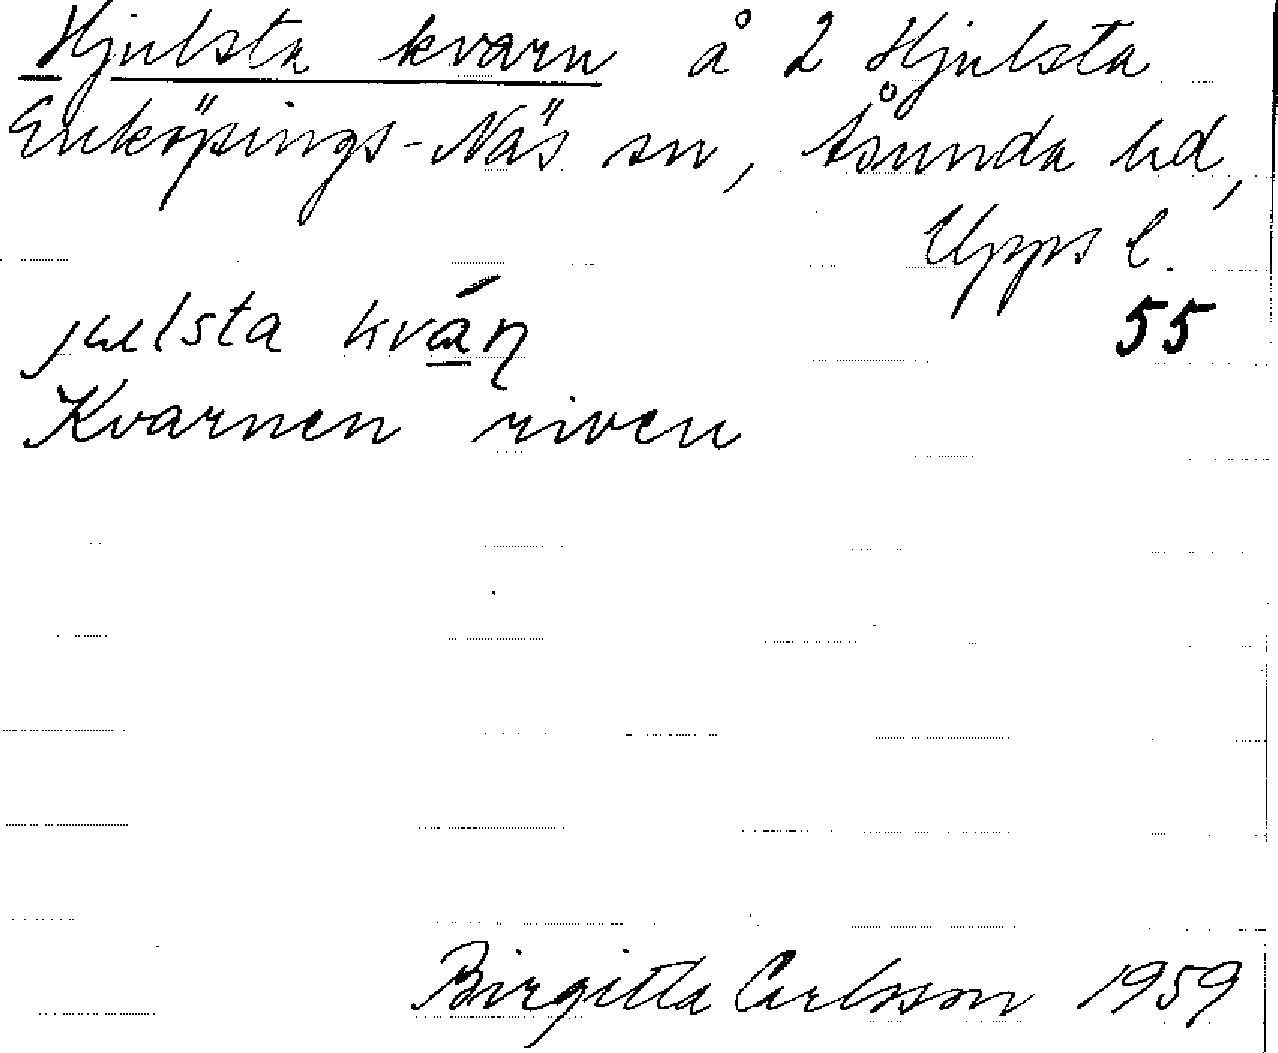 Hjulsta kvarn å 2 Hjulsta
Enköpings-Näs sn, Åsunda hd,
Upps l.
jɯlsta kváɳ
55
Kvarnen riven
Birgitta Carlsson 1959